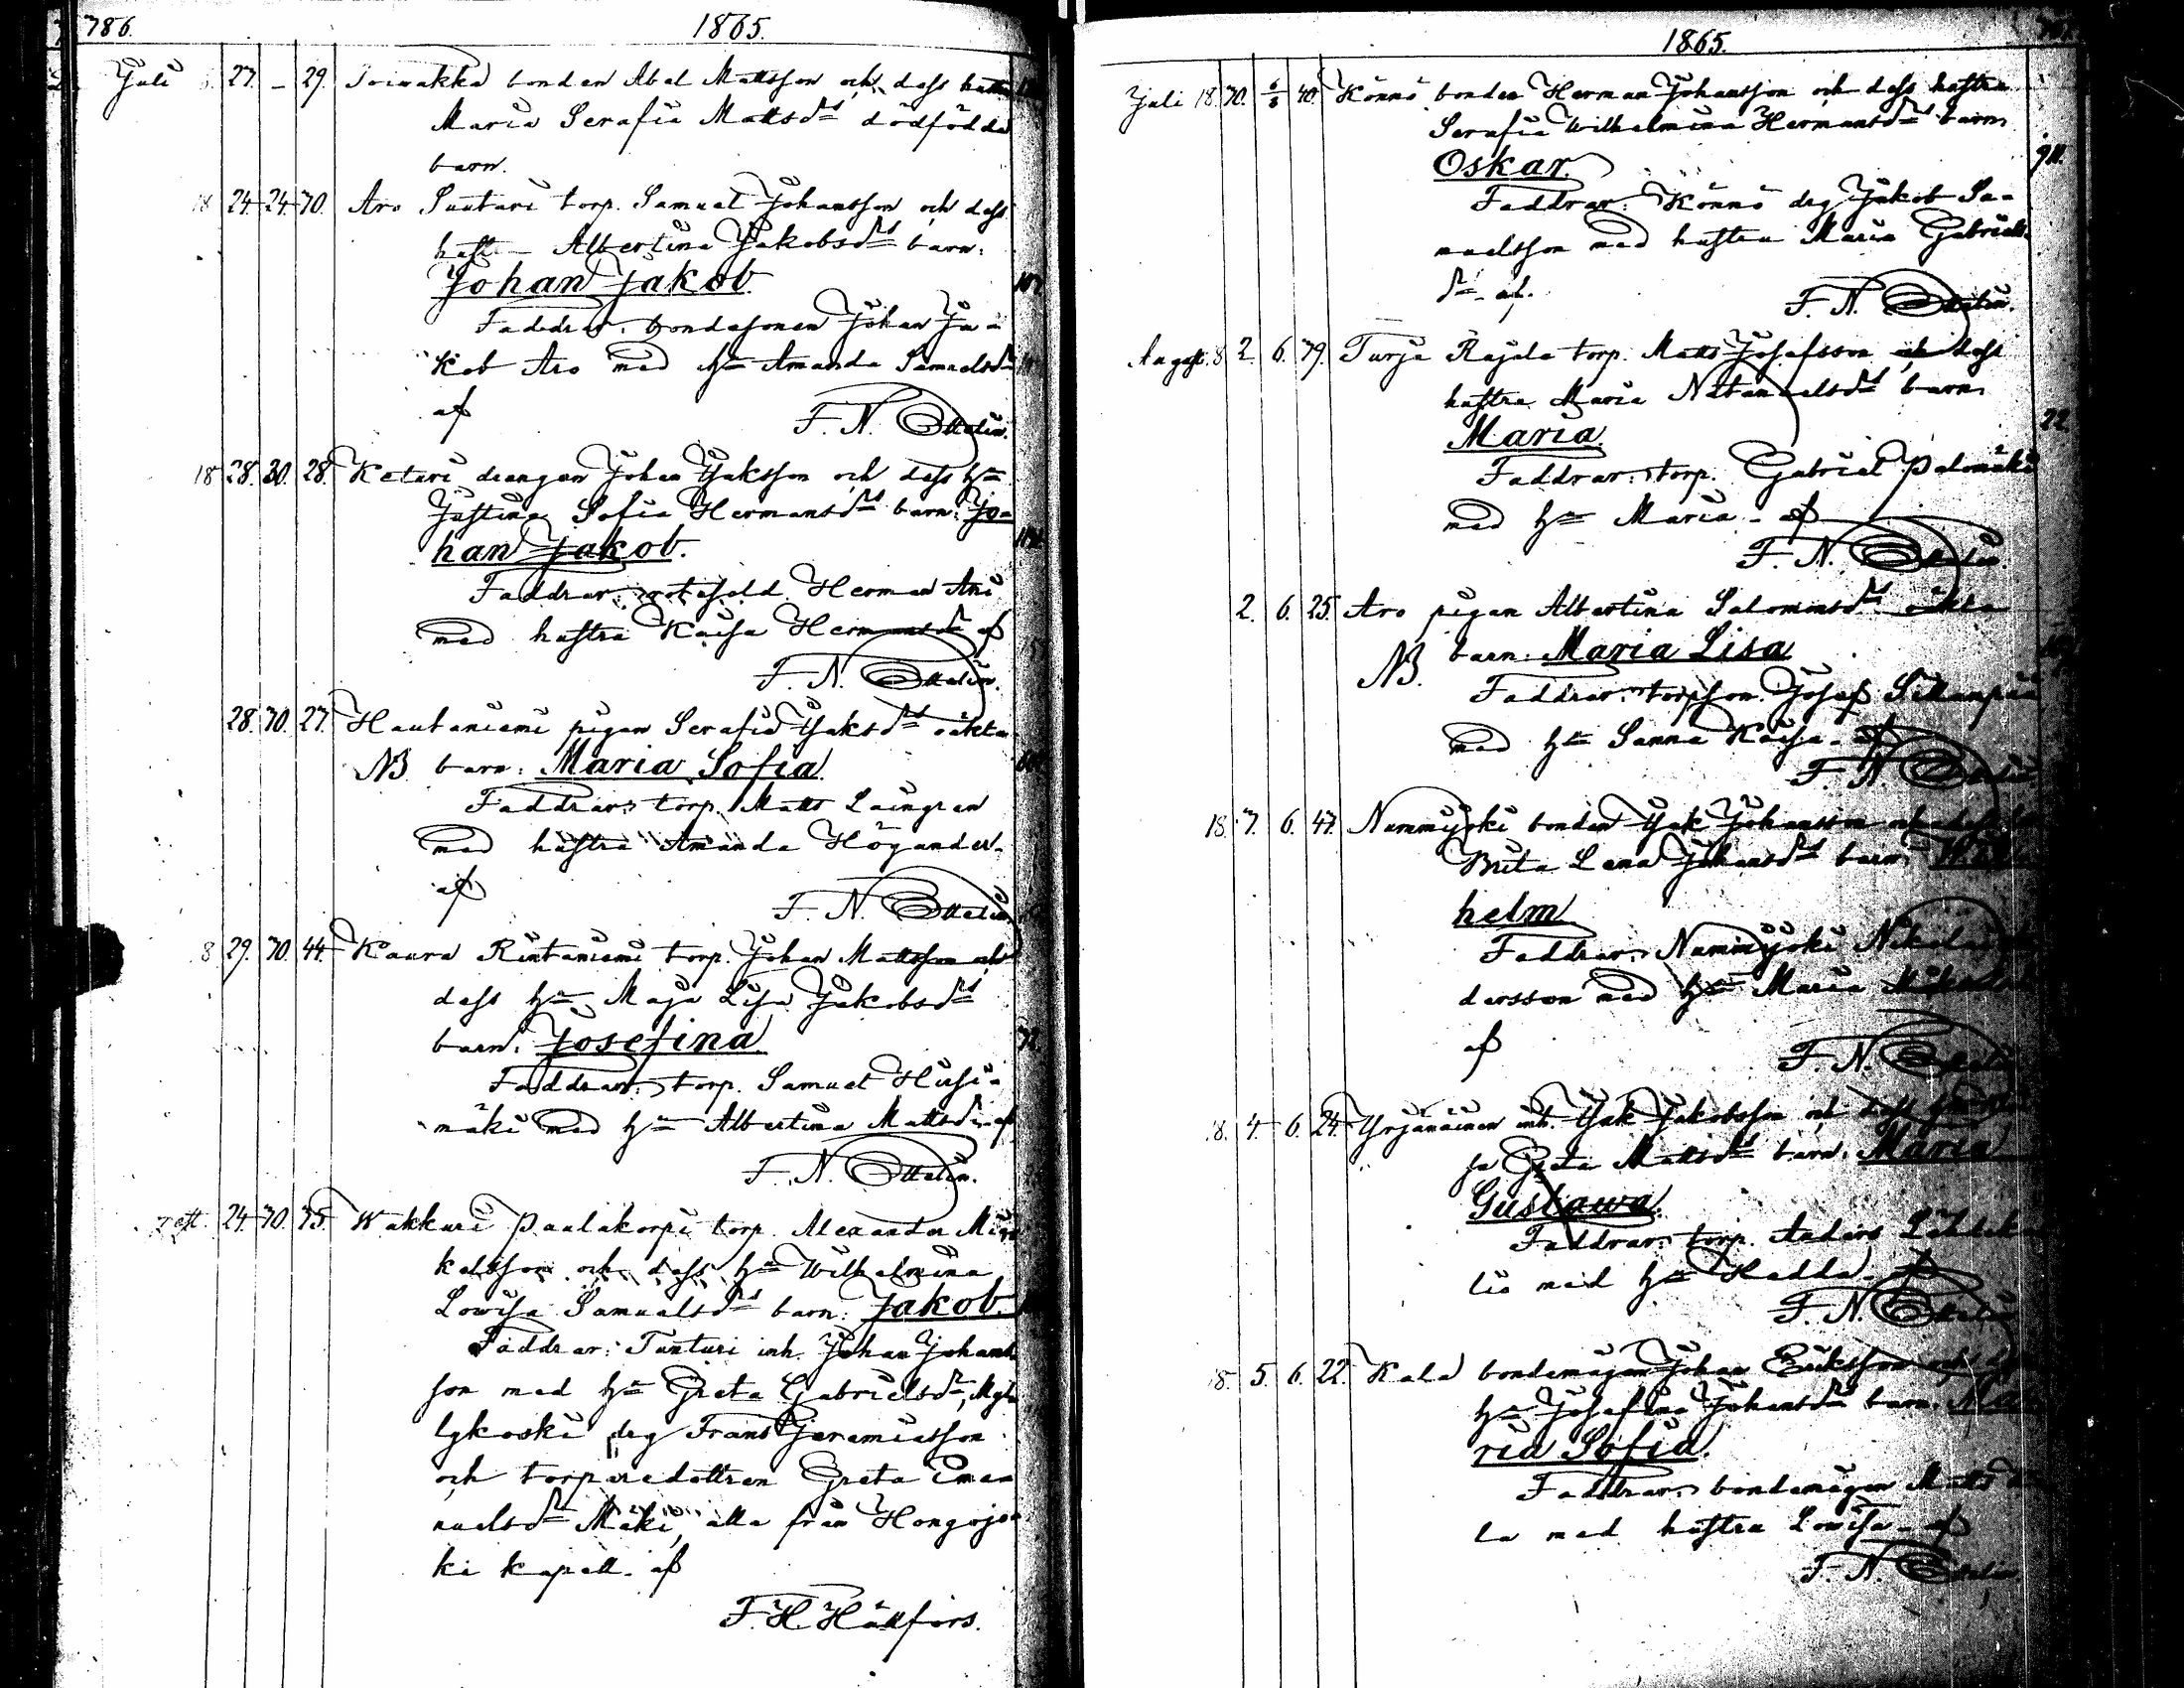 786.
1865.
Juli 27. – 29. Toiwakka bonden Abel Mattsson och dess hustru
Maria Serafia Mattsdrs dödfödda
barn.
18 24. 24. 70. Aro Suutari torp. Samuel Johansson och dess
hust– Albertina Jakobsdrs barn:
Johan Jakob
Faddrar: bondesonen Johan Ja-
kob Aro med h– Amanda Samuelsdr
af
F. N. Ottelin.
18 28. 30. 28. Keturi drängen Johan Isaksson och dess h–
Justina Sofia Hermansdrs barn: Jo-
han Jakob.
Faddrar: rotesold. Herman Ani
med hustru Kaisa Hermansdr af
F. N. Ottelin.
28. 30. 27. Hautaniemi pigan Serafia Isaksdrs oäkta
NB. barn: Maria Sofia
Faddrar: torp. Matts Laingren
med hustru Amanda Högander.
af
F. N. Ottelin.
8 29. 30. 44. Kaura Rintaniemi torp. Johan Mattsson och
dess h– Maja Lisa Jakobsdrs
barn: Josefina
72.
Faddrar: torp. Samuel Hirsi-
mäki med h– Albertina Mattsdr af
F. N. Ottelin.
24. 30. 75. Wakkuri Paulakorpi torp. Alexander Mi
kelsson och dess h– Wilhelmina
Lowisa Samuelsdrs barn: Jakob.
Faddrar: Tunturi inh. Johan Johans-
son med h– Greta Gabrielsdr, Myl
lykoski drg Frans Jeremiasson
och torparedottren Greta Ema-
nuelsdr Mäki, alla från Hongojo
ki kapell. af
F. H. Hällfors.
1865.
Juli 18. 30. 6/8 40. Könnö bonden Herman Johansson och dess hustru
Serafia Wilhelmina Hermansdrs barn
Oskar.
911.
Faddrar: Könnö drg Jakob Sa-
muelsson med hustru Maria Gabriels-
dr– af.
F. N. Ottelin.
August. 8 2. 6. 79. Turja Rajala torp. Matts Josefsson och dess
hustru Maria Natanaelsdrs barn
Maria.
22.
Faddrar: torp. Gabriel Palomäki
med h– Maria – af
F. N. Ottelin.
2. 6. 25. Aro pigan Albertina Salomonsdrs oäkta
NB. barn: Maria Lisa
Faddrar: torpson. Josef Sillanpää
med h– Sanna Kaisa – af
F. N. Ottelin
18. 7. 6. 47. Nummijoki bonden Isak Johansson och dess
Brita Lena Johansdrs barn: Wil
helm
Faddrar: Nummijoki Nikolai
dersson med h– Maria
af
F. N. Ottelin
18. 4. 6. 24. Yrjänäinen inh. Isak Jakobsson och dess h–
sa Greta Mattsdrs barn: Maria
Gustawa.
Faddrar: torp. Anders
lio med h– Hedda – af
F. N. Ottelin
18. 5. 6. 22. Kala bondemågen Johan Eriksson och dess
h– Josefina Johansdrs barn: Ma
ria Sofia.
Faddrar: bondemågen Matts
la med hustru Lowisa – af
F. N. Ottelin